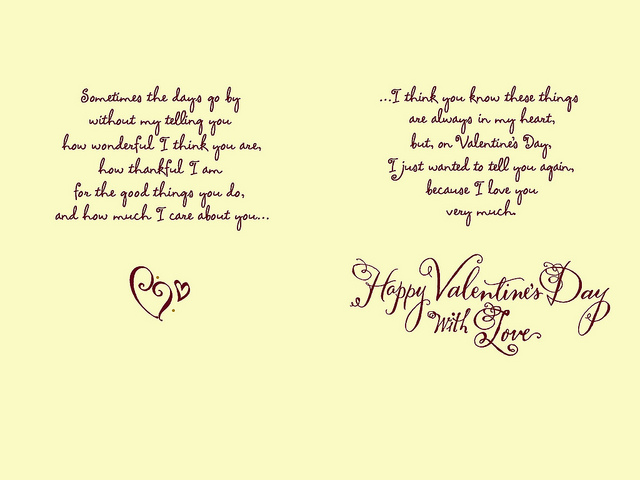 Sometimes the days go by
without my telling you
how wonderful I think you are,
how thankful I am
for the good things you do,
and how much I care about you...
...I think you know these things
are always in my heart,
but, on Valentine's Day,
I just wanted to tell you again,
because I love you
very much.
Happy Valentine's Day
With Love